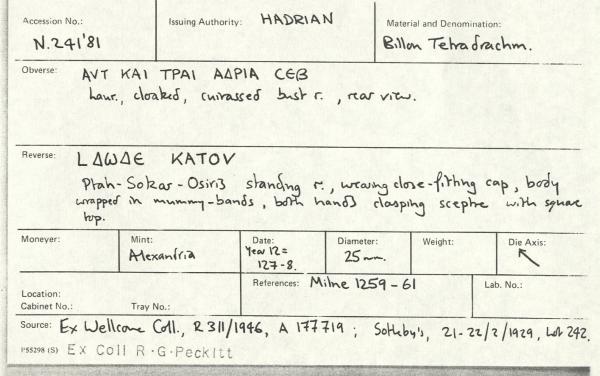 Accession No.: Issuing Authority: HADRIAN Material and Denomination:
N.241'81 Billon Tetradrachm.
Obverse: ΑVΤ ΚΑΙ ΤΡΑΙ ΑΔΡΙΑ CЄΒ
laur., cloaked, cuirassed bust r., rear view.
Reverse: L ΔѠΔЄ ΚΑΤΟV
Ptah-Sokar-Osiris standing r., wearing close-fitting cap, body
wrapped in mummy-bands, both hands clasping sceptre with square
top.
Moneyer: Mint: Date: Diameter: Weight: Die Axis:
Alexandria Year 12 = 25 mm. ↖
127-8.
References: Milne 1259-61 Lab. No.:
Location:
Cabinet No.: Tray No.:
Source: Ex Wellcome Coll., R 311/1946, A 177719; Sotheby's, 21-22/2/1929, Lot 242.
P55298 (S) Ex Coll R.G.Peckitt